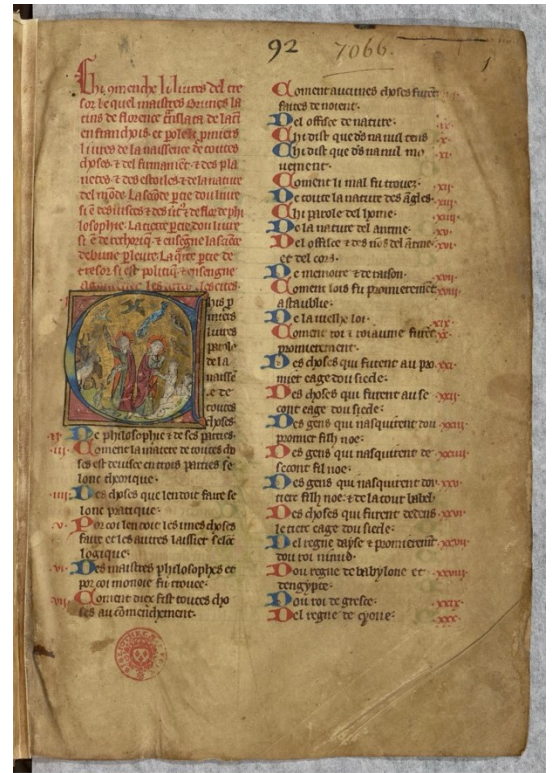 92
7066.
1
Chi 9menche li livres del tre
sor le quel maistres brunes la
tins de florence tnslata de latĩ
en franchois. et pole li pmiers
livres de la naissence de toutes
choses. ⁊ del humanite. ⁊ des pla
netes. ⁊ des estoiles. ⁊ de la nature
del mõde. La secõde ptie dou livre
losophie. La tierce ptie dou livre
si ẽ de rethoriq̃. ⁊ ensegne la sciẽce
de bune pleure. La q̃rte ptie de
tresor si est politiq̃. ⁊ ensengne
Chis p
miers
livres
parole
de la
naissẽ
ce de
toutes
choses
De philosophie ⁊ de ses parties.
.iii. Coment la matere de toutes cho
ses est devisee en trois parties se
lonc theorique.
.iiii. Des choses que len doit faire se
lonc pratique.
.v. Por coi len doit les unes choses
faire et les autres laissier selõc
logique.
.vi. Des maistres philosophes et
por coi monoie fu trovee.
.vii. Coment diex fist toutes cho
ses au cõmenchement.
Coment aucunes choses furẽt
faites de noient.
Del office de nature. .ix.
Chi dist que dõs na nul tens .x.
Chi dist que dõs na nul mo .xi.
vement.
Coment li mal fu trovez. .xii.
De toute la nature des ãgles. .xiii.
Chi parole del home. .xiiii.
De la nature del anime. .xv.
Del office ⁊ des nõs del anime .xvi.
et del cors.
De memoire ⁊ de raison. .xvii.
Coment lois fu promierement .xviii.
astaublie.
De la vielhe loi. .xix.
Coment roi ⁊ roiaume furẽt .xx.
promierement.
Des choses qui furent au pro .xxi.
mier eage dou siecle.
Des choses qui furent au se .xxii.
cont eage dou siecle.
Des gens qui nasquirent dou .xxiii.
promier filh noe.
Des gens qui nasquirent de .xxiiii.
secont fil noe.
Des gens qui nasquirent dou .xxv.
tiers filh noe. ⁊ de la tour babel
Des choses qui furent dedens .xxvi.
le tiers eage dou siecle.
Del regne dayse ⁊ promieremẽt .xxvii.
dou roi ninus.
Dou regne de babylone et .xxviii.
dengypte.
Dou roi de gresce. .xxix.
Del regne de cyonie. .xxx.